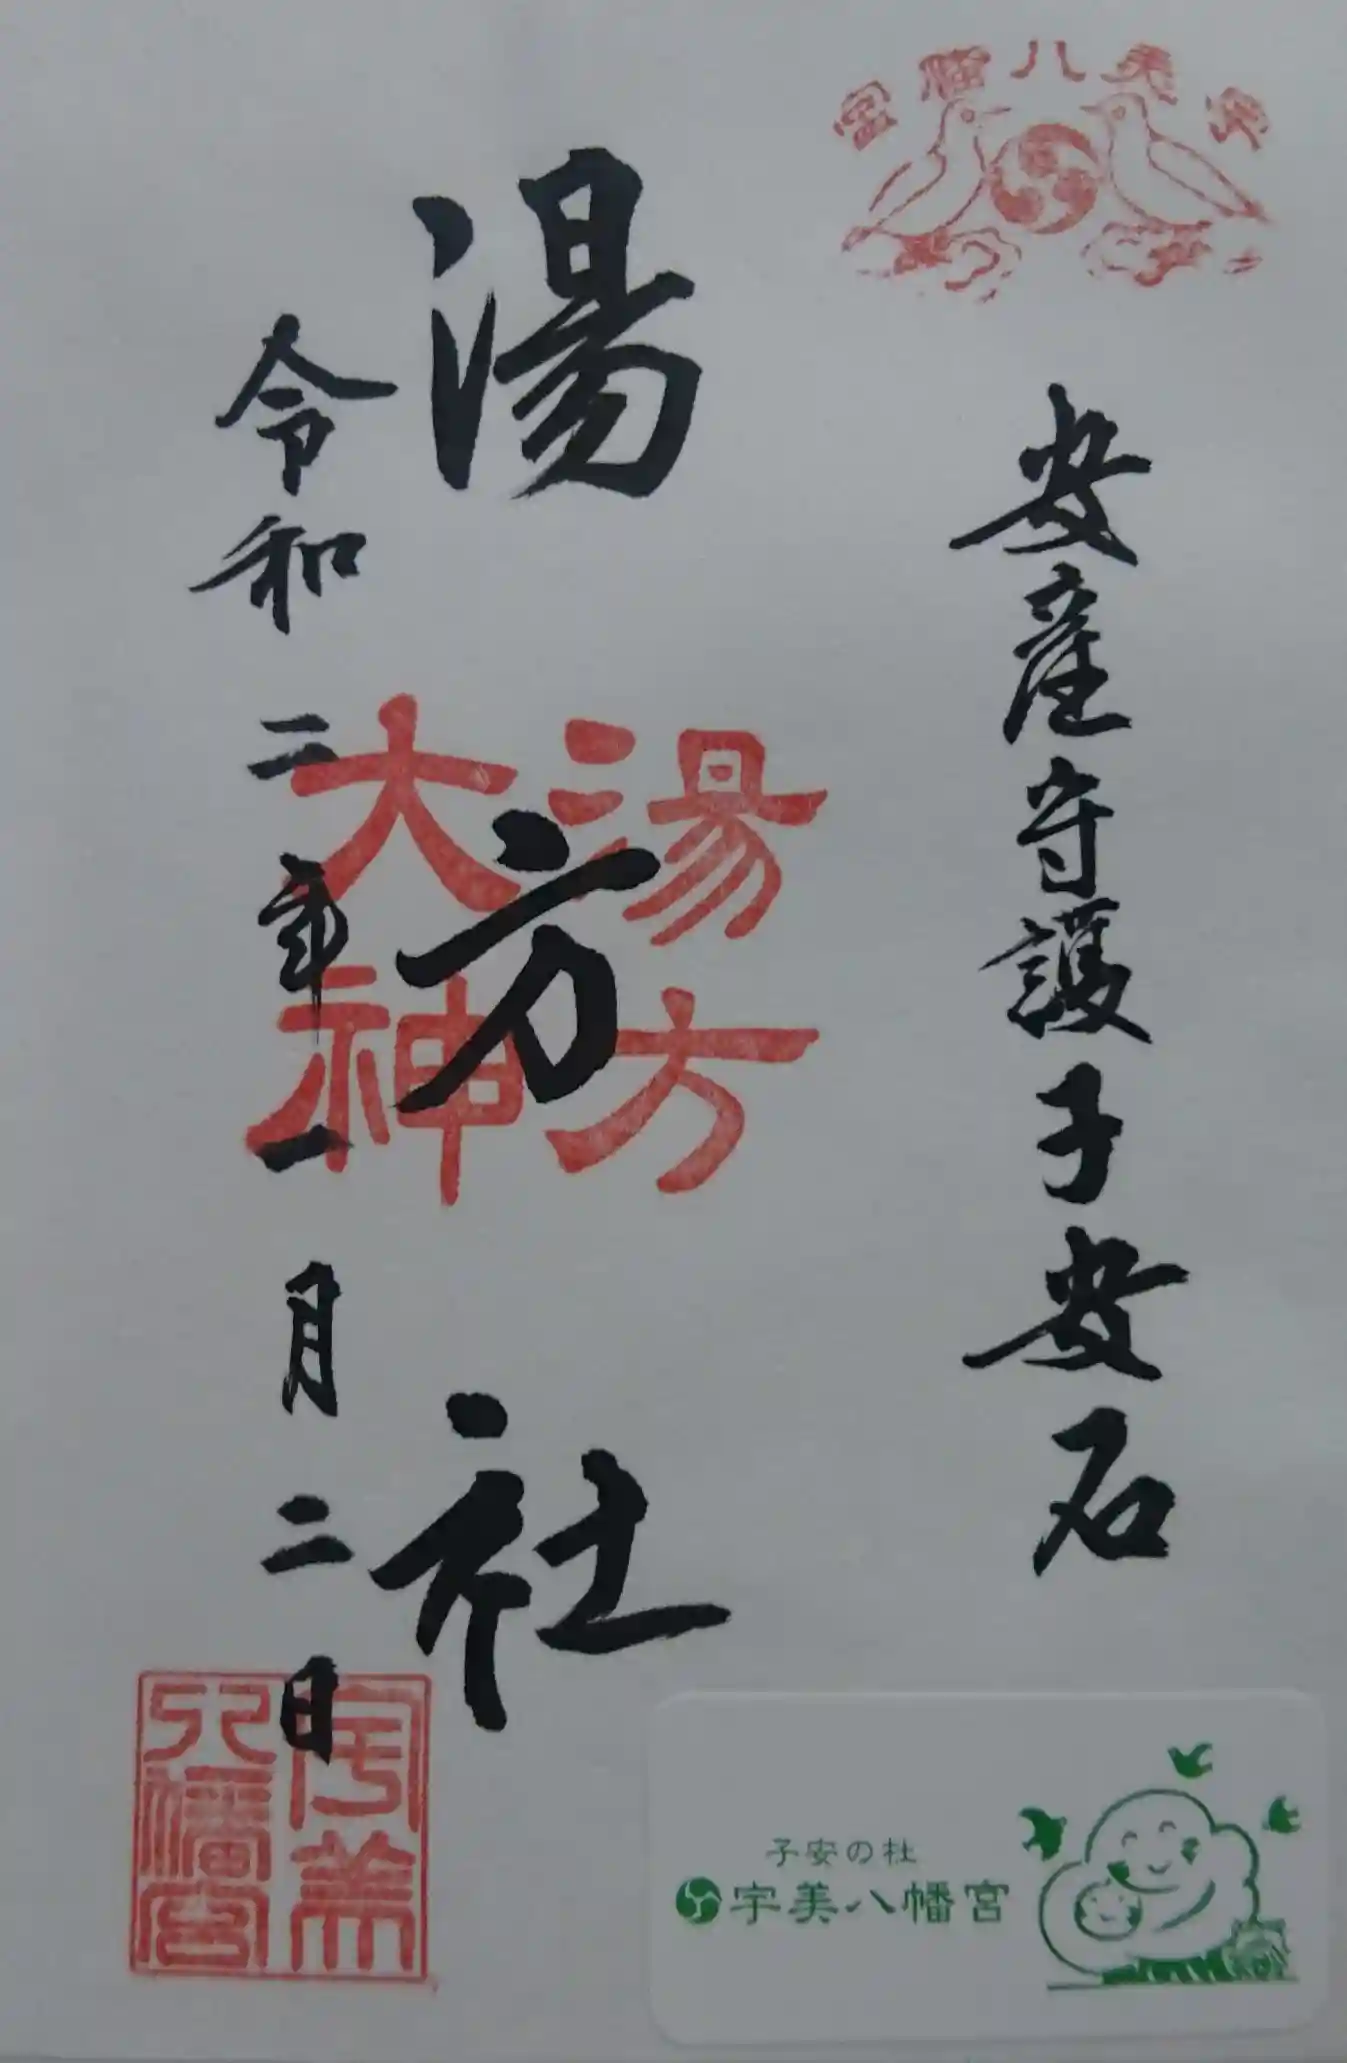 宇美八幡宮
安産守護子安石
湯方社
湯方
大神
令和二年一月二日
宇美
八幡宮
子安の杜
宇美八幡宮